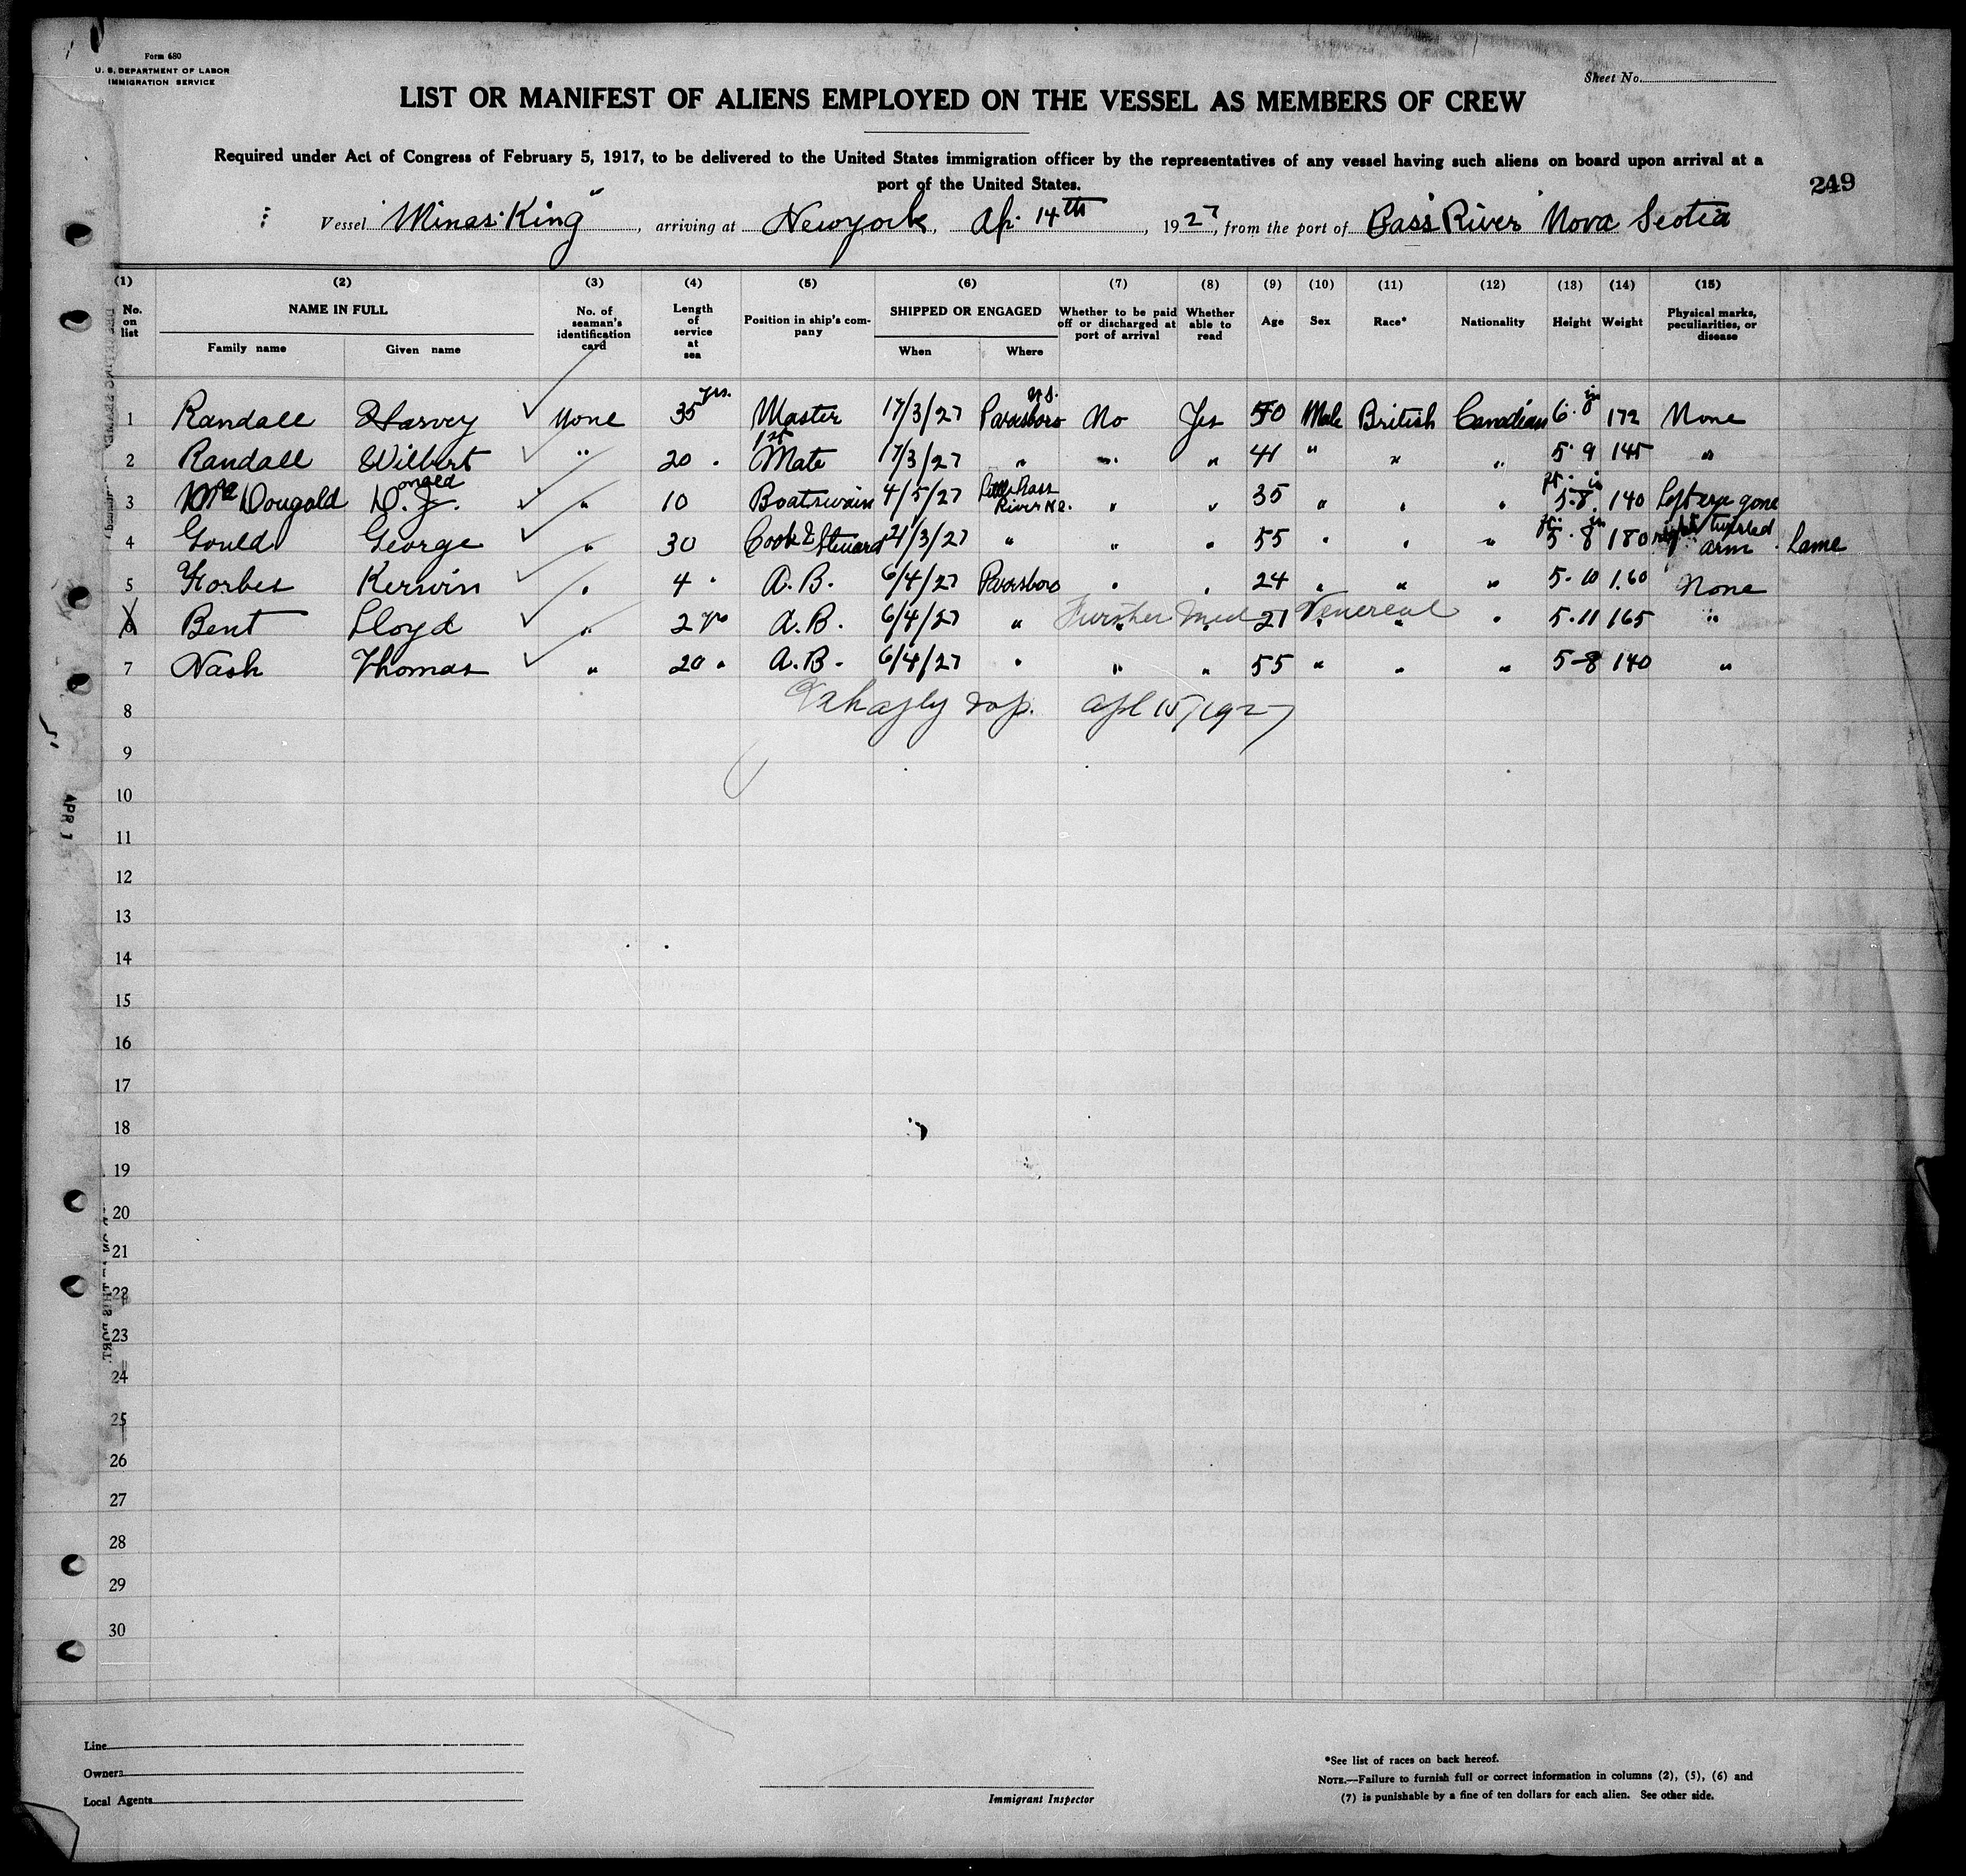 Form 680
U. S. DEPARTMENT OF LABOR
IMMIGRATION SERVICE
Sheet No.
LIST OR MANIFEST OF ALIENS EMPLOYED ON THE VESSEL AS MEMBERS OF CREW
Required under Act of Congress of February 5, 1917, to be delivered to the United States immigration officer by the representatives of any vessel having such aliens on board upon arrival at a
port of the United States.
249
Vessel "Minas King", arriving at New york, Ap. 14th, 1927, from the port of Bass River Nova Scotia
(1) (2) (3) (4) (5) (6) (7) (8) (9) (10) (11) (12) (13) (14) (15)
No. on list NAME IN FULL Family name Given name No. of seaman's identification card Length of service at sea Position in ship's company SHIPPED OR ENGAGED When Where Whether to be paid off or discharged at port of arrival Whether able to read Age Sex Race* Nationality Height Weight Physical marks, peculiarities, or disease
1 Randall Harvey None 35 yrs. Master 17/3/27 Parrsboro N.S. No Yes 50 Male British Canadian 6. 0 in 172 None
2 Randall Wilbert " 20 " 1st Mate 17/3/27 " " " 41 " " " 5. 9 145 "
3 McDougald Donald J. " 10 Boatswain 4/5/27 Little Bass River N.S. " " 35 " " " ft. 5. 8 in 140 left eye gone
4 Gould George " 30 Cook & Steward 21/3/27 " " " 55 " " " ft. 5. 8 in 180 right twisted arm. lame
5 Forbes Kerwin " 4 " A. B. 6/4/27 Parrsboro " " 24 " " " 5. 10 160 None
6 Bent Lloyd " 2 yrs A. B. 6/4/27 " " " 21 " " " 5. 11 165 "
Further Med Venereal
7 Nash Thomas " 20 " A. B. 6/4/27 " " " 55 " " " 5-8 140 "
8 Apl 15/1927
9
10
11
12
13
14
15
16
17
18
19
20
21
22
23
24
25
26
27
28
29
30
APR 1
Line
Owners
Local Agents
Immigrant Inspector
*See list of races on back hereof.
NOTE.—Failure to furnish full or correct information in columns (2), (5), (6) and
(7) is punishable by a fine of ten dollars for each alien. See other side.